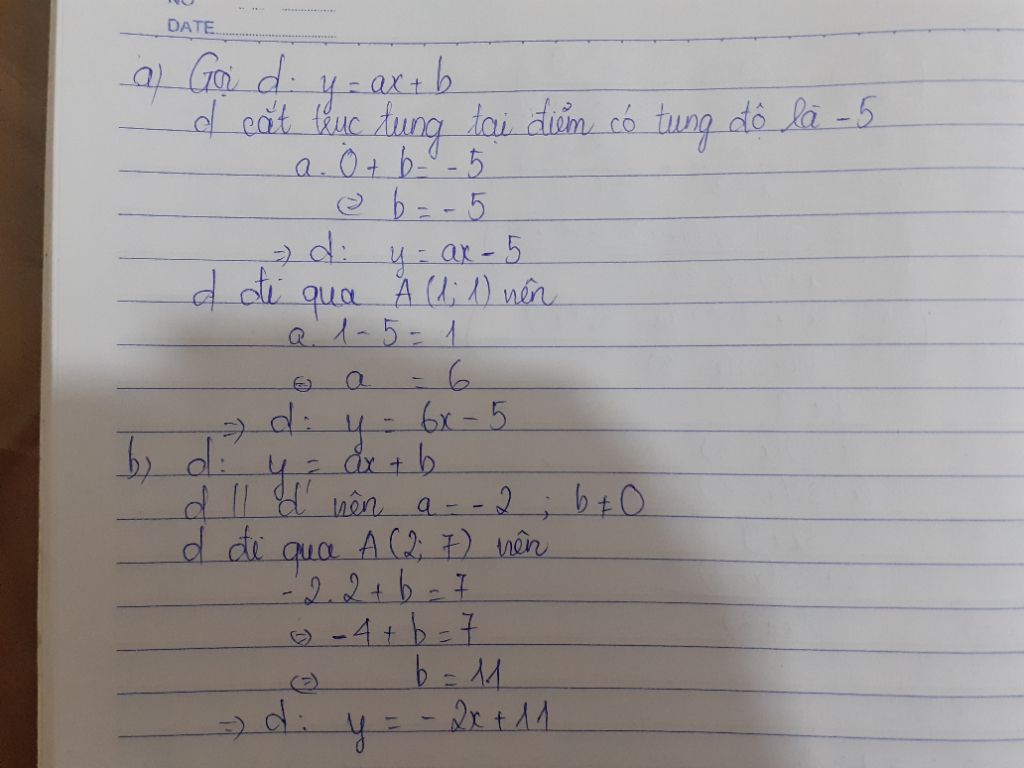 NO
DATE
a) Gọi d: y = ax + b
d cắt trục tung tại điểm có tung độ là -5
a. 0 + b = -5
⇔ b = -5
=> d: y = ax - 5
d đi qua A (1; 1) nên
a. 1 - 5 = 1
⇔ a = 6
=> d: y = 6x - 5
b) d: y = ax + b
d // d' nên a = -2 ; b ≠ 0
d đi qua A (2; 7) nên
-2. 2 + b = 7
⇔ -4 + b = 7
⇔ b = 11
=> d: y = -2x + 11